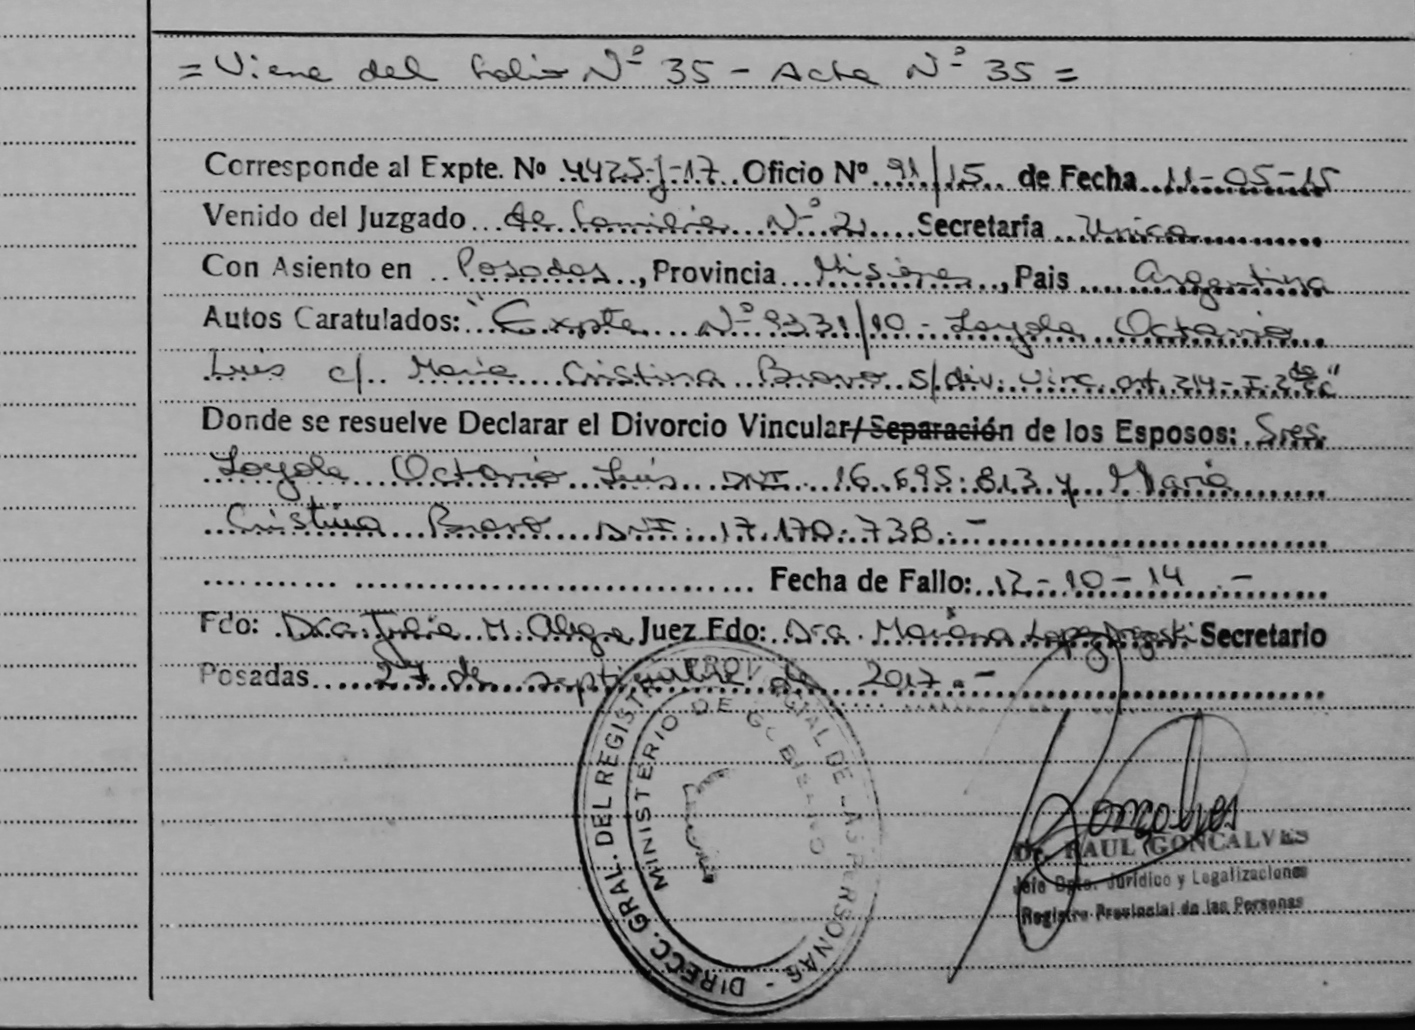 = Viene del folio Nº 35 - Acta Nº 35 =
Corresponde al Expte. Nº 4425-J-17 Oficio Nº 91/15 de Fecha 11-05-15
Venido del Juzgado de familia Nº 2 Secretaría Unica
Con Asiento en Posadas, Provincia Misiones, Pais Argentina
Autos Caratulados: "Expte Nº 9331/10 - Loyola Octavio
Luis c/ Maria Cristina Bravo s/div. Vinc. art. 214 - I. 2da"
Donde se resuelve Declarar el Divorcio Vincular/Separación de los Esposos: Sres.
Loyola Octavio Luis DNI 16.695.813 y Maria
Cristina Bravo DNI: 17.170.738.-
Fecha de Fallo: 12-10-14.-
Fdo: Dra. Julia M. Alegre Juez Fdo: Dra. Mariana Lopez Secretario
Posadas 27 de septiembre de 2017.-
DIRECC. GRAL. DEL REGISTRO PROVINCIAL DE LAS PERSONAS -
MINISTERIO DE GOBIERNO
Goncalves
Dr. RAUL GONCALVES
Jefe Dpto. Jurídico y Legalizaciones
Registro Provincial de las Personas